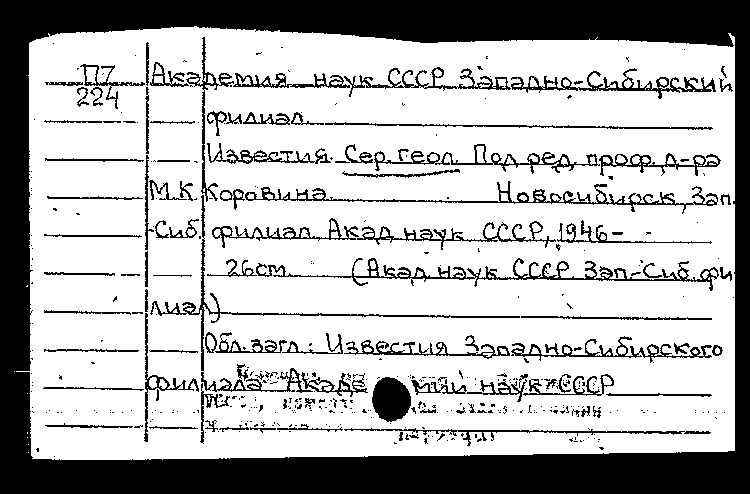 П7 Академия наук СССР. Западно-Сибирский
224
филиал.
Известия. Сер. геол. Под ред. проф. д-ра
М.К. Коровина. Новосибирск, Зап.
-Сиб. филиал Акад. наук СССР, 1946-
26 cm. (Акад. наук СССР. Зап.-Сиб. фи-
лиал)
Обл. загл.: Известия Западно-Сибирского
филиала Академии наук СССР